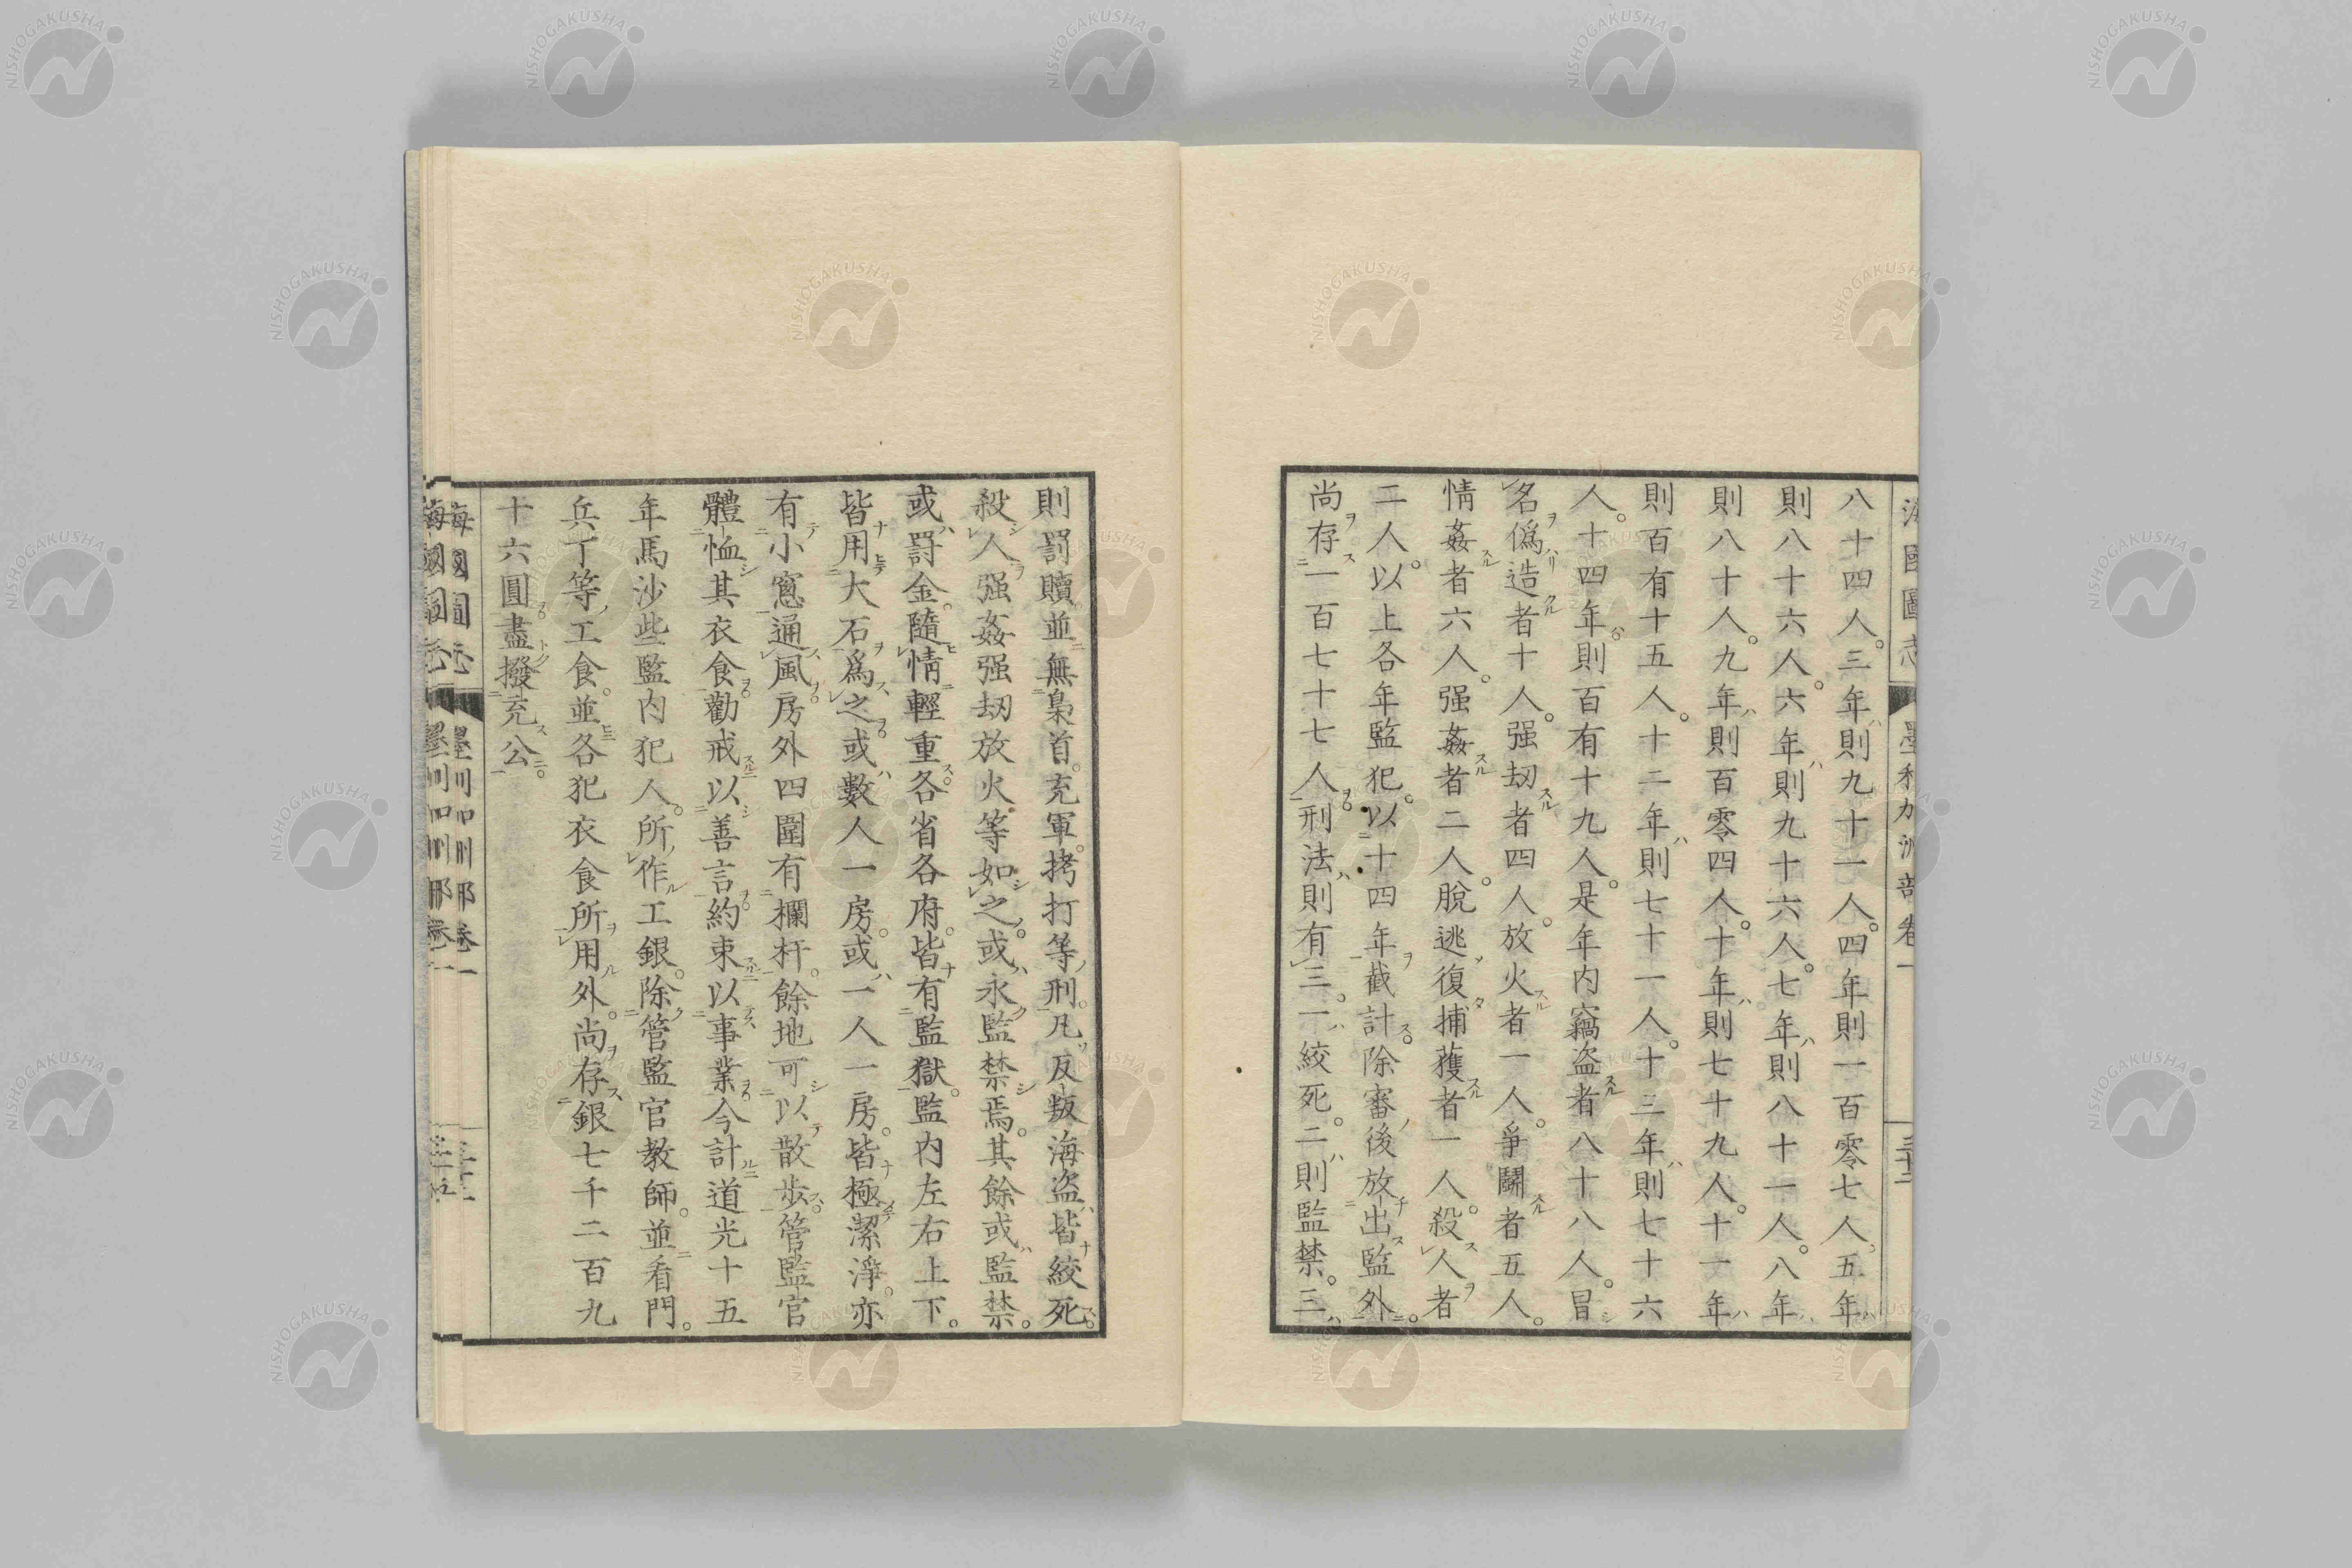 八十四人。三年則九十一人。四年則一百零七人。五年
則八十六人。六年則九十六人。七年則八十一人。八年
則八十人。九年則百零四人。十年則七十九人。十一年
則百有十五人。十二年則七十一人。十三年則七十六
人。十四年則百有十九人。是年內竊盜者八十八人。冒
名僞造者十人。强刼者四人。放火者一人。爭鬭者五人。
情姦者六人。强姦者二人。脫逃復捕獲者一人。殺人者
二人。以上各年監犯。以十四年截計。除審後放出監外。
尚存一百七十七人。刑法則有三。一絞死。二則監禁。三
則罰贖。並無梟首。充軍。拷打等刑。凡反叛海盜皆絞死。
殺人强姦强刼放火等如之。或永監禁焉。其餘或監禁。
或罰金。隨情輕重。各省各府。皆有監獄。監內左右上下。
皆用大石爲之。或數人一房。或一人一房。皆極潔淨。亦
有小窻通風。房外四圍有欄杆。餘地可以散步。管監官
體恤其衣食。勸戒以善言。約束以事業。今計道光十五
年馬沙些監內犯人。所作工銀。除管監官教師。並看門。
兵丁等工食。並各犯衣食所用外。尚存銀七千二百九
十六圓。盡撥充公。
海國圖志 墨利加洲部卷一
NISHOGAKUSHA